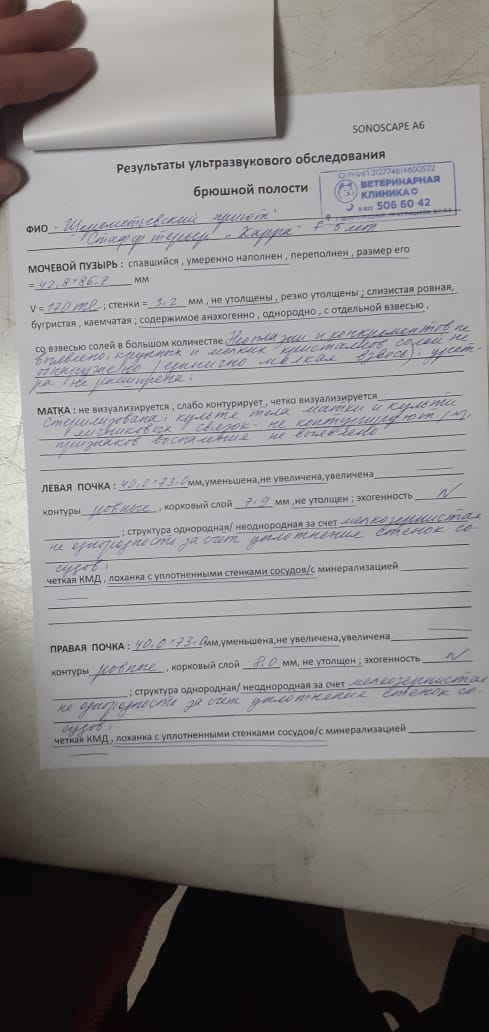 SONOSCAPE A6
Результаты ультразвукового обследования
брюшной полости
ОГРНИП 312774614600522
ВЕТЕРИНАРНАЯ
КЛИНИКА
8 925 506 60 42
ФИО - "Шереметьевский приют"
Стафф терьер "Харра" 5 лет
МОЧЕВОЙ ПУЗЫРЬ : спавшийся , умеренно наполнен , переполнен , размер его
= 42,8*86,8 мм
V = 170 ml ; стенки = 3,2 мм , не утолщены , резко утолщены ; слизистая ровная,
бугристая , каемчатая ; содержимое анэхогенно , однородно , с отдельной взвесью ,
со взвесью солей в большом количестве Неоплазии и конкрементов не
выявлено, крупных и мелких кристаллов солей не
обнаружено (единично мелкая взвесь); урет-
ра не расширена;
МАТКА : не визуализируется , слабо контурирует , четко визуализируется
Стерилизована; культе тела матки и культи
яичниковых связок - не контурируют,
признаков воспаления не выявлено
ЛЕВАЯ ПОЧКА : 40,0*73,0 мм,уменьшена,не увеличена,увеличена
контуры ровные , корковый слой 7,9 мм ,не утолщен ; эхогенность N
; структура однородная/ неоднородная за счет мелкозернистая
не однородность за счёт уплотнение стенок со-
судов;
четкая КМД , лоханка с уплотненными стенками сосудов/с минерализацией
ПРАВАЯ ПОЧКА : 40,0*73,0 мм,уменьшена,не увеличена,увеличена
контуры ровные , корковый слой 8,0 мм, не утолщен ; эхогенность N
; структура однородная/ неоднородная за счет мелкозернистая
не однородность за счёт уплотнение стенок со-
судов;
четкая КМД , лоханка с уплотненными стенками сосудов/с минерализацией